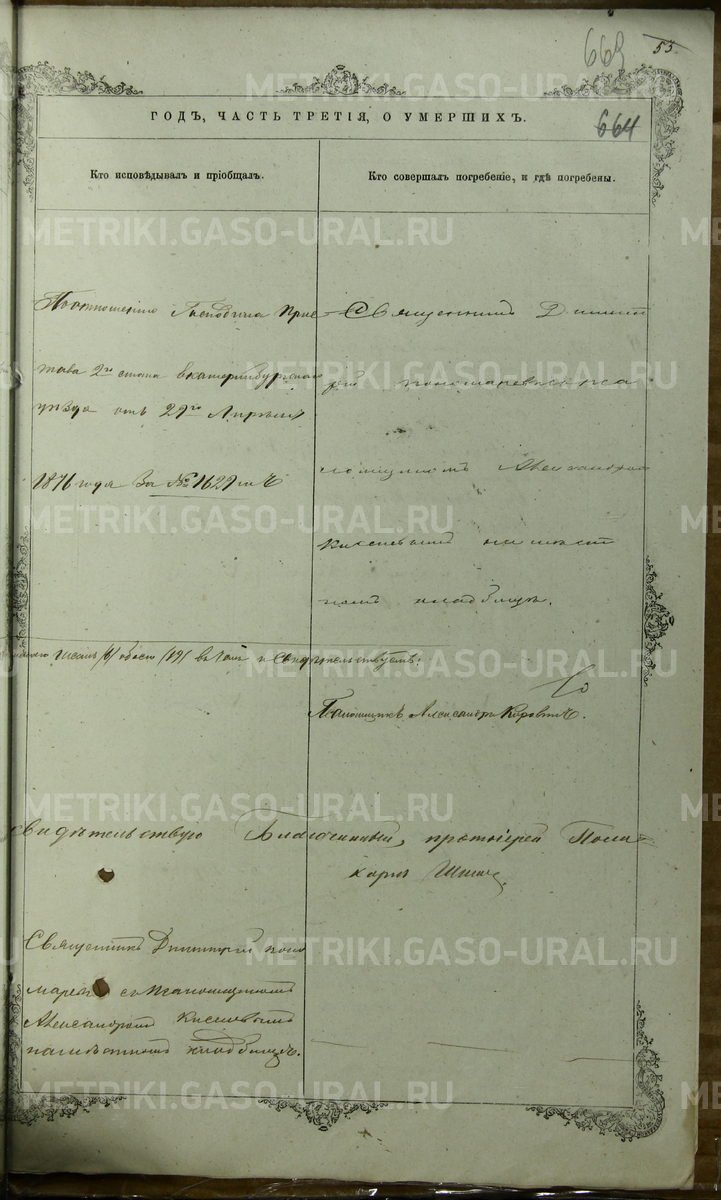 663
53.
ГОДЪ, ЧАСТЬ ТРЕТІЯ, О УМЕРШИХЪ.
664
Кто исповѣдывалъ и пріобщалъ.
Кто совершалъ погребеніе, и гдѣ погребены.
По отношенію Господина Прис
тава 2го стана Екатеринбургскаго
уѣзда отъ 29го Апрѣля
1876 года за № 1629мъ
Священникъ Димит
рій Пономаревъ съ пса
ломщикомъ Александром
Киселевымъ на мѣст
номъ кладбищѣ.
/6/ обоего /19/
свидѣтельствуемъ:
Псаломщикъ Александръ
Свидѣтельствую Благочинный, протоіерей Поли-
карпъ
Священникъ Димитрій Поно
маревъ съ Псаломщикомъ
Александромъ Киселевымъ
на мѣстномъ кладбищѣ.
METRIKI.GASO-URAL.RU